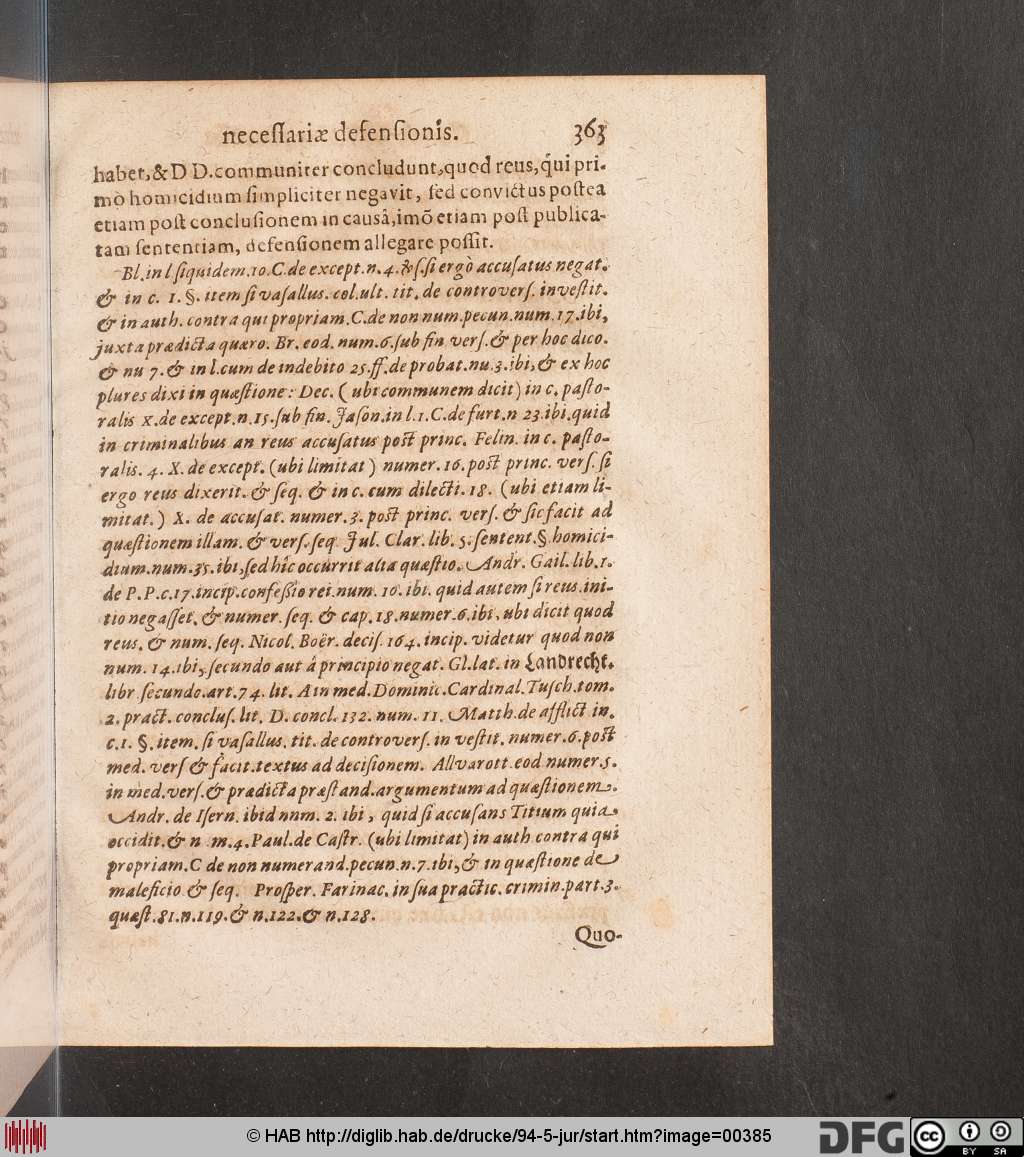 necessariæ defensionis. 363
habet, & D D. communiter concludunt, quod reus, qui pri-
mò homicidium simpliciter negavit, sed convictus postea
etiam post conclusionem in causâ, imõ etiam post publica-
tam sententiam, defensionem allegare possit.
Bl. in l siquidem. 10. C. de except. n. 4. &s. si ergò accusatus negat.
& in c. 1. §. item si vasallus. col. ult. tit. de controvers. investit.
& in auth. contra qui propriam. C. de non num. pecun. num. 17. ibi,
juxta prædicta quæro. Br. eod. num. 6. sub fin vers. & per hoc dico.
& nu 7. & in l. cum de indebito 25. ff. de probat. nu. 3. ibi, & ex hoc
plures dixi in quæstione: Dec. (ubi communem dicit) in c. pasto-
ralis x. de except. n. 15. sub fin. Jason. in l. 1. C. de furt. n 23. ibi. quid
in criminalibus an reus accusatus post princ. Felin. in c. pasto-
ralis. 4. X. de except. (ubi limitat) numer. 16. post princ. vers. si
ergo reus dixerit. & seq. & in c. cum dilecti. 18. (ubi etiam li-
mitat.) X. de accusat. numer. 3. post princ. vers. & sic facit ad
quæstionem illam. & vers. seq. Jul. Clar. lib. 5. sentent. § homici-
dium. num. 35. ibi, sed hîc occurrit alia quæstio. Andr. Gail. lib. 1.
de P. P. c. 17. incip. confessio rei. num. 10. ibi. quid autem si reus. ini-
tio negasset. & numer. seq. & cap. 18. numer. 6. ibi, ubi dicit quod
reus. & num. seq. Nicol. Boër. decis. 164. incip. videtur quod non
num. 14. ibi, secundo aut â principio negat. Gl. lat. in Landrecht.
libr secundo. art. 74. lit. A in med. Dominic. Cardinal. Tusch. tom.
2. pract. conclus. lit. D. concl. 132. num. 11. Matth. de afflict in.
c. 1. §. item. si vasallus. tit. de controvers. in vestit. numer. 6. post
med. vers & facit. textus ad decisionem. Allvarott. eod numer. 5.
in med. vers. & prædicta præstand. argumentum ad quæstionem.
Andr. de Isern. ibid nnm. 2. ibi, quid si accusans Titium quia
occidit. & n m. 4. Paul. de Castr. (ubi limitat) in auth contra qui
propriam. C de non numerand. pecun. n. 7. ibi, & in quæstione de
maleficio & seq. Prosper. Farinac. in sua practic. crimin. part. 3.
quæst. 81. n. 119. & n. 122. & n. 128.
Quo-
© HAB http://diglib.hab.de/drucke/94-5-jur/start.htm?image=00385
DFG
cc BY SA